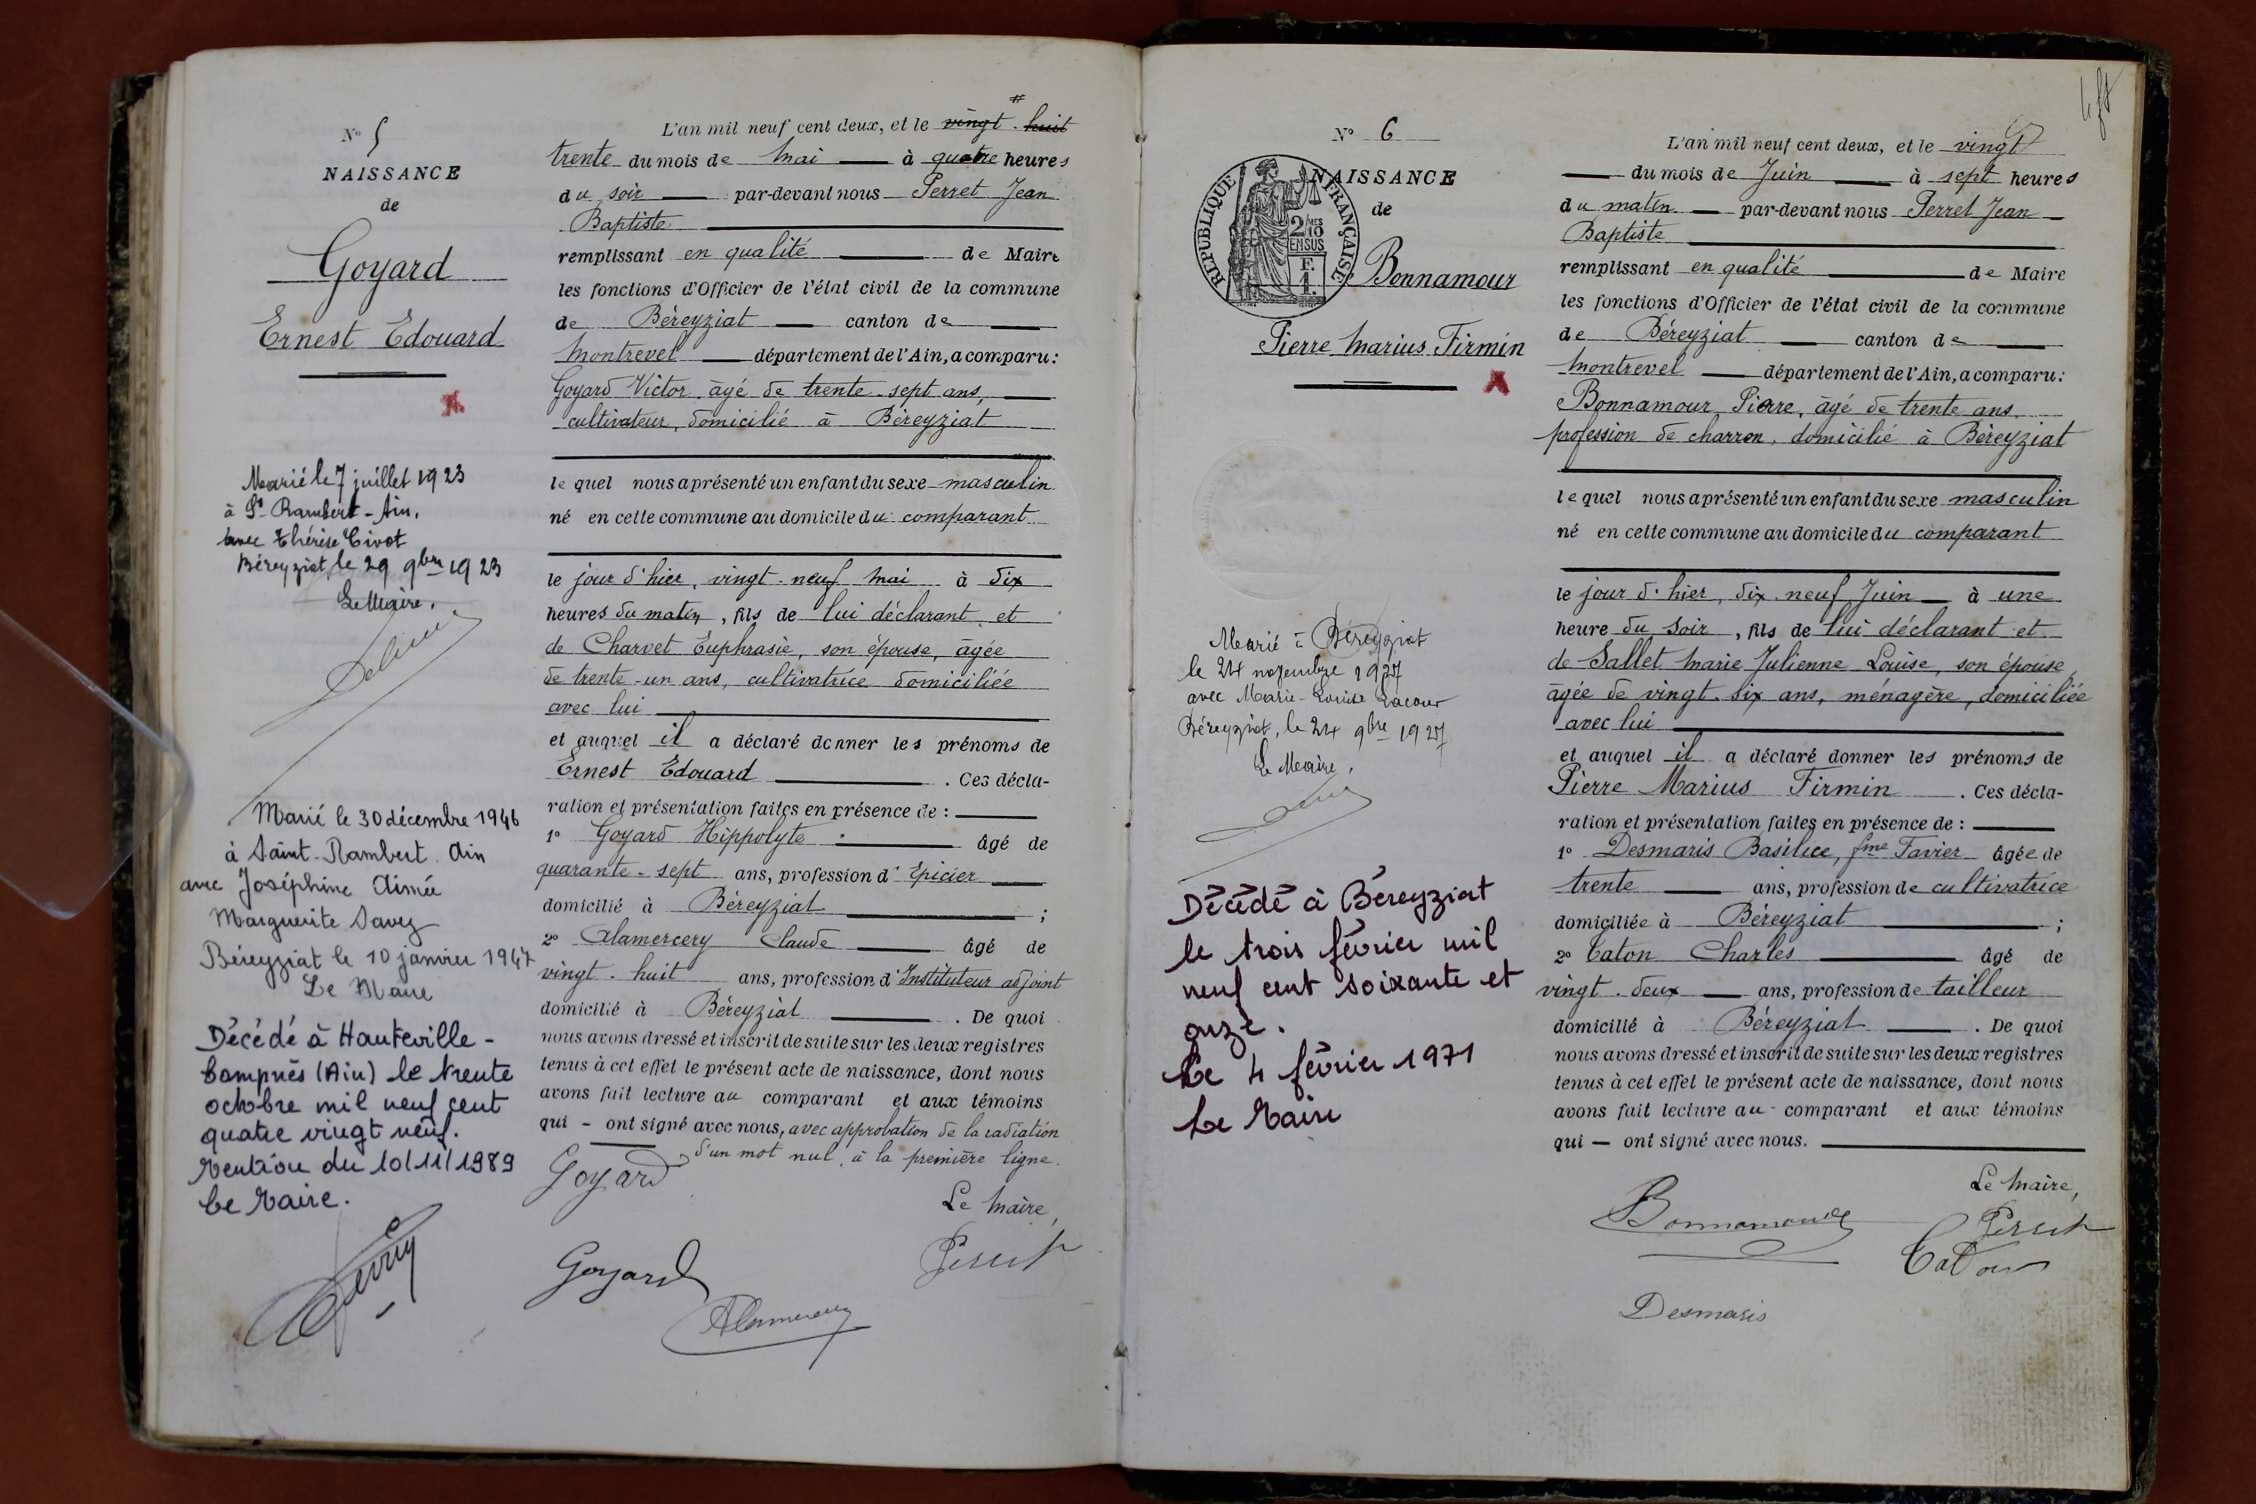 N° 5
NAISSANCE
de
Goyard
Ernest Edouard
Marié le 7 juillet 1923
à St Rambert - Ain,
avec Thérèse Civot
Béreyziat le 29 9bre 1923
Le Maire,
Marié le 30 décembre 1946
à Saint-Rambert. Ain
avec Joséphine Aimée
Marguerite Savey
Béreyziat le 10 janvier 1947
Le Maire
Décédé à Hauteville-
Lompnès (Ain) le trente
octobre mil neuf cent
quatre vingt neuf.
Mention du 10/11/1989
Le Maire.
L'an mil neuf cent deux, et le vingt-huit #
trente du mois de Mai à quatre heures
du soir par-devant nous Perret Jean
Baptiste
remplissant en qualité de Maire
les fonctions d'Officier de l'état civil de la commune
de Béreyziat canton de
Montrevel département de l'Ain, a comparu:
Goyard Victor, âgé de trente-sept ans,
cultivateur, domicilié à Béreyziat
lequel nous a présenté un enfant du sexe masculin
né en cette commune au domicile du comparant
le jour d'hier, vingt-neuf Mai à dix
heures du matin, fils de lui déclarant et
de Charvet Euphrasie, son épouse, âgée
de trente-un ans, cultivatrice domiciliée
avec lui
et auquel il a déclaré donner les prénoms de
Ernest Edouard. Ces décla-
ration et présentation faites en présence de :
1° Goyard Hippolyte âgé de
quarante-sept ans, profession d'Epicier
domicilié à Béreyziat ;
2° Alamercery Claude âgé de
vingt-huit ans, profession d'Instituteur adjoint
domicilié à Béreyziat. De quoi
nous avons dressé et inscrit de suite sur les deux registres
tenus à cet effet le présent acte de naissance, dont nous
avons fait lecture au comparant et aux témoins
qui - ont signé avec nous, avec approbation de la radiation
d'un mot nul, à la première ligne.
Goyard
Le Maire,
Goyard
Perret
Alamercery
N° 6
NAISSANCE
de
RÉPUBLIQUE FRANÇAISE
2/10 MES
EN SUS
F.
1.
Bonnamour
Pierre Marius Firmin
Marié à Béreyziat
le 24 novembre 1927
avec Marie-Louise Lacour
Béreyziat, le 24 9bre 1927
Le Maire,
Décédé à Béreyziat
le trois février mil
neuf cent soixante et
onze.
Le 4 février 1971
Le Maire
L'an mil neuf cent deux, et le vingt
du mois de Juin à sept heures
du matin par-devant nous Perret Jean
Baptiste
remplissant en qualité de Maire
les fonctions d'Officier de l'état civil de la commune
de Béreyziat canton de
Montrevel département de l'Ain, a comparu:
Bonnamour Pierre, âgé de trente ans
profession de charron, domicilié à Béreyziat
lequel nous a présenté un enfant du sexe masculin
né en cette commune au domicile du comparant
le jour d'hier, dix-neuf Juin à une
heure du soir, fils de lui déclarant et
de Sallet Marie Julienne Louise, son épouse
âgée de vingt-six ans, ménagère, domiciliée
avec lui
et auquel il a déclaré donner les prénoms de
Pierre Marius Firmin. Ces décla-
ration et présentation faites en présence de :
1° Desmaris Basilice, fme Favier âgée de
trente ans, profession de cultivatrice
domiciliée à Béreyziat ;
2° Caton Charles âgé de
vingt-deux ans, profession de tailleur
domicilié à Béreyziat. De quoi
nous avons dressé et inscrit de suite sur les deux registres
tenus à cet effet le présent acte de naissance, dont nous
avons fait lecture au comparant et aux témoins
qui — ont signé avec nous.
Le Maire,
Bonnamour
Perret
Caton
Desmaris